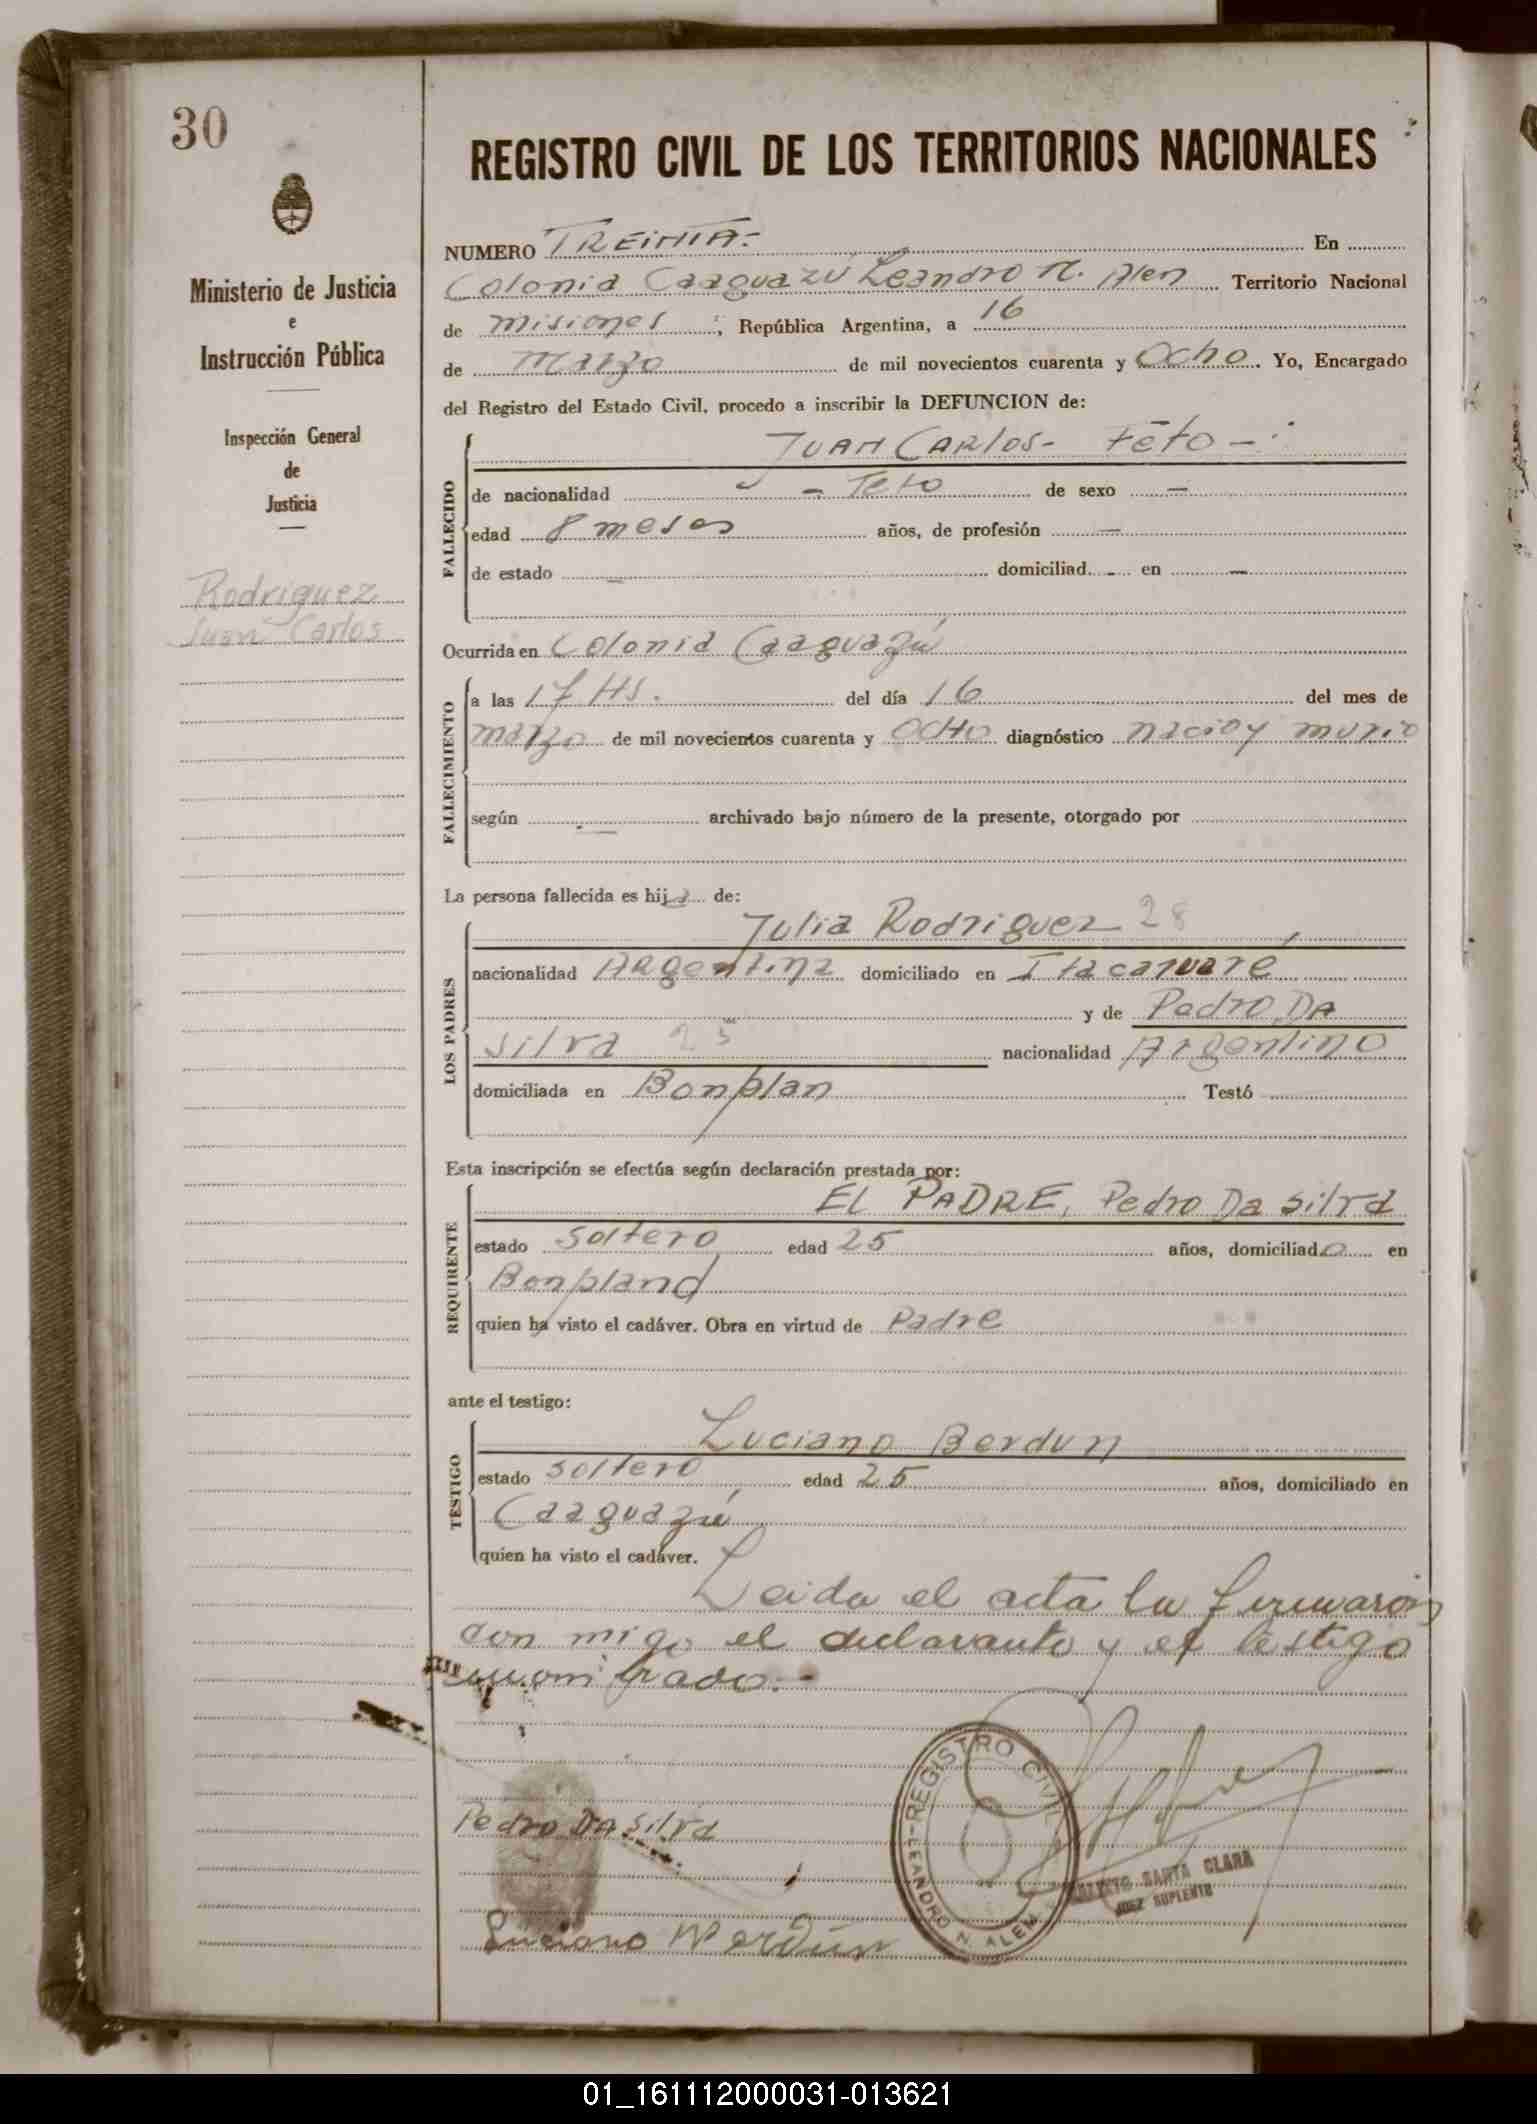 30
Ministerio de Justicia
e
Instrucción Pública
Inspección General
de
Justicia
Rodriguez
Juan Carlos
REGISTRO CIVIL DE LOS TERRITORIOS NACIONALES
NUMERO TREINTA.- En
Colonia Caaguazú Leandro N. Alen Territorio Nacional
de misiones, República Argentina, a 16
de marzo de mil novecientos cuarenta y Ocho. Yo, Encargado
del Registro del Estado Civil, procedo a inscribir la DEFUNCION de:
FALLECIDO
JUAN CARLOS- Féto -
de nacionalidad - Feto de sexo -
edad 8 meses años, de profesión -
de estado - domiciliad - en -
Ocurrida en Colonia Caaguazú
FALLECIMIENTO
a las 17 Hs. del día 16 del mes de
marzo de mil novecientos cuarenta y OCHO diagnóstico nacio y murio
según - archivado bajo número de la presente, otorgado por
La persona fallecida es hija de:
LOS PADRES
Julia Rodriguez 28
nacionalidad Argentina domiciliado en Itacaruaré
y de Pedro DA
silva 25 nacionalidad Argentino
domiciliada en Bonplan Testó
Esta inscripción se efectúa según declaración prestada por:
REQUIRENTE
EL PADRE, Pedro Da silva
estado soltero edad 25 años, domiciliado en
Bonpland
quien ha visto el cadáver. Obra en virtud de Padre
ante el testigo:
TESTIGO
Luciano Berdun
estado soltero edad 25 años, domiciliado en
Caaguazú
quien ha visto el cadáver.
Leida el acta la firmaron
con migo el declarante y el testigo
Pedro DA silva
Luciano Verdún
REGISTRO CIVIL
LEANDRO N. ALEM
SANTA CLARA
JUEZ SUPLENTE
01_161112000031-013621